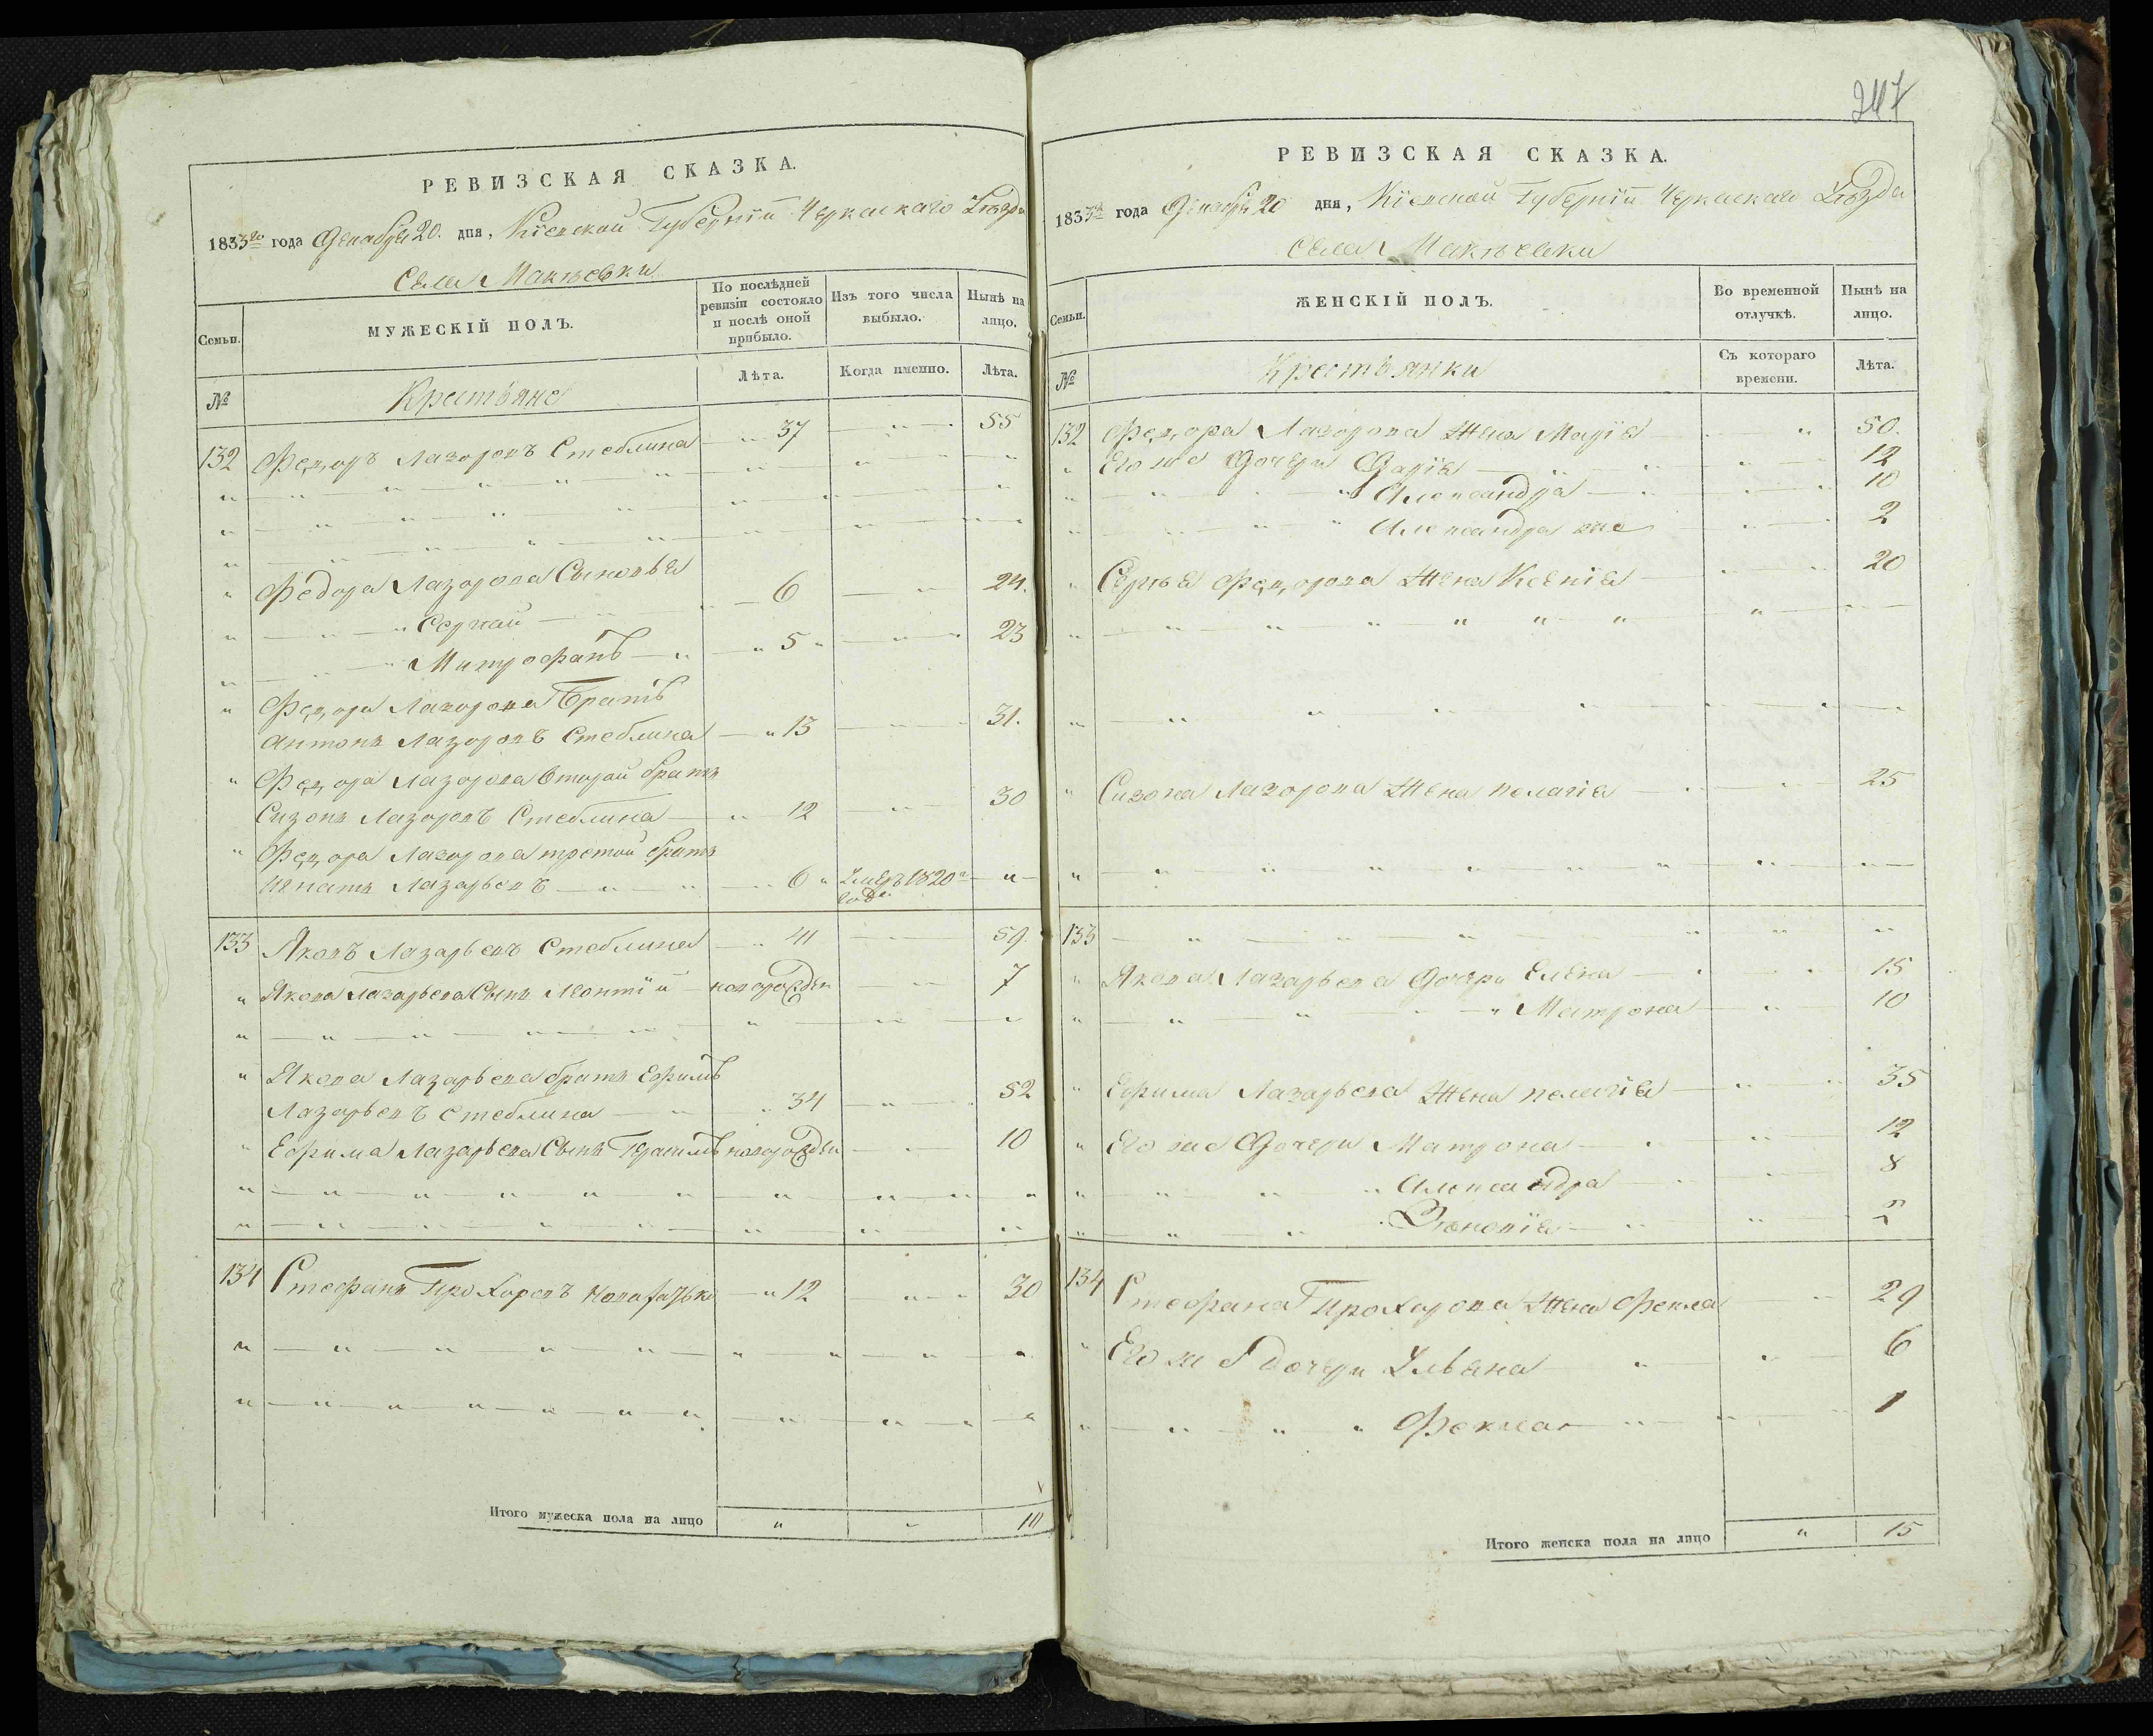 247
РЕВИЗСКАЯ СКАЗКА.
1833го года Декабря 20. дня, Кіевской Губерніи Черкаскаго Уѣзда
Села Макѣевки
Семьи.
МУЖЕСКІЙ ПОЛЪ.
По послѣдней ревизіи состояло и послѣ оной прибыло.
Изъ того числа выбыло.
Нынѣ на лицо.
№
Крестьяне
Лѣта.
Когда именно.
Лѣта.
132 Федоръ Лазоровъ Стеблина 37 55
Федора Лазорова Сыновья
Сергѣй 6 24.
Митрофанъ 5 23
Федора Лазорова Братъ
Антонъ Лазоровъ Стеблина 13 31.
Федора Лазорова Второй братъ
Сизонъ Лазоровъ Стеблина 12 30
Федора Лазорова третій братъ
Игнатъ Лазарьевъ 6 Умеръ 1820 года
133 Яковъ Лазарьевъ Стеблина 41 59.
Якова Лазарьева Сынъ Леонтій новорожден 7
Якова Лазарьева братъ Ефимъ
Лазарьевъ Стеблина 34 52
Ефима Лазарьева Сынъ Герасимъ новорожден 10
134 Стефанъ Прохоровъ 12 30
Итого мужеска пола на лицо 10
РЕВИЗСКАЯ СКАЗКА.
1833го года Декабря 20 дня, Кіевской Губерніи Черкаскаго Уѣзда
Села Макѣевки
Семьи.
ЖЕНСКІЙ ПОЛЪ.
Во временной отлучкѣ.
Нынѣ на лицо.
№
Крестьянки
Съ котораго времени.
Лѣта.
132 Федора Лазорова Жена Марія 50.
Его же Дочери Дарія 12
Александра 10
Александра же 2
Сергѣя Федорова Жена Ксенія 20
Сизона Лазорова Жена Пелагія 25
133
Якова Лазарьева Дочери Елена 15
Матрона 10
Ефима Лазарьева Жена Пелагія 35
Его же Дочери Матрона 12
Александра 8
Зѣновія 2
134 Стефана Прохорова Жена Фекла 29
Его же дочери Ульяна 6
Фекла 1
Итого женска пола на лицо 15